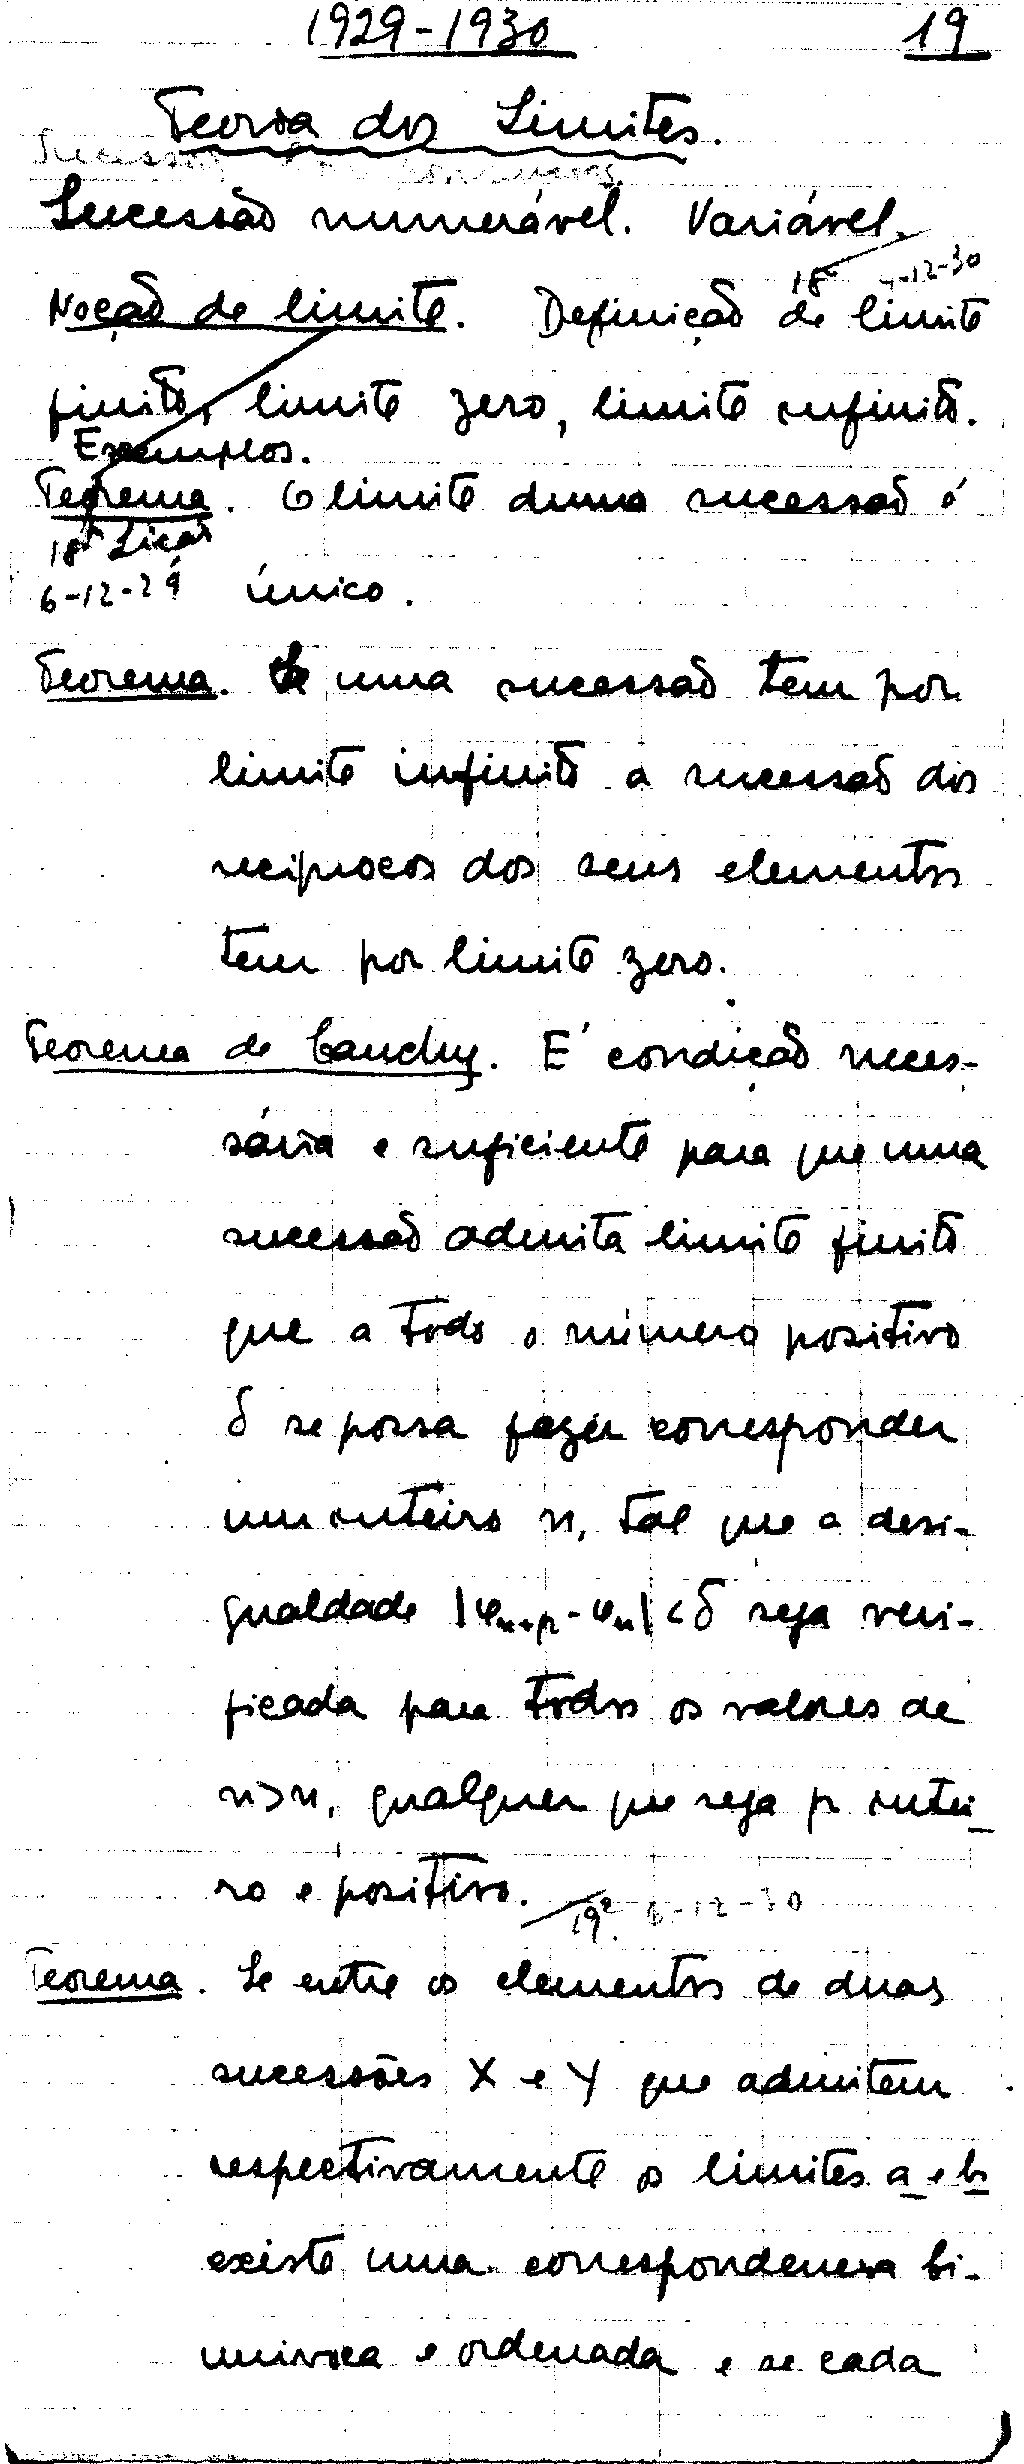 1929-1930 19
Teoria dos Limites.
Sucessão numerável. Variável.
18ª -12-30
Noção de limite. Definição de limite
finito, limite zero, limite infinito.
Exemplos.
Teorema. O limite duma sucessão é
18ª Lição
6-12-29 único.
Teorema. Se uma sucessão tem por
limite infinito a sucessão dos
recíprocos dos seus elementos
tem por limite zero.
Teorema de Cauchy. É condição neces-
sária e suficiente para que uma
sucessão admita limite finito
que a todo o número positivo
δ se possa fazer corresponder
um inteiro n, tal que a desi-
gualdade |φn+p - φn| < δ seja veri-
ficada para todos os valores de
n>n, qualquer que seja p intei-
ro e positivo.
19ª 6-12-30
Teorema. Se entre os elementos de duas
sucessões X e Y que admitem
respectivamente os limites a e b
existe uma correspondencia bi-
unívoca e ordenada e se cada